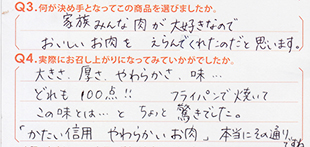 Q3.何が決め手となってこの商品を選びましたか。
家族みんな肉が大好きなので
おいしいお肉を えらんでくれたのだと思います。
Q4.実際にお召し上がりになってみていかがでしたか。
大きさ、厚さ、やわらかさ、味…
どれも100点!! フライパンで焼いて
この味とは…と ちょっと驚きでした。
「かたい信用 やわらかいお肉」 本当にその通り
ですね